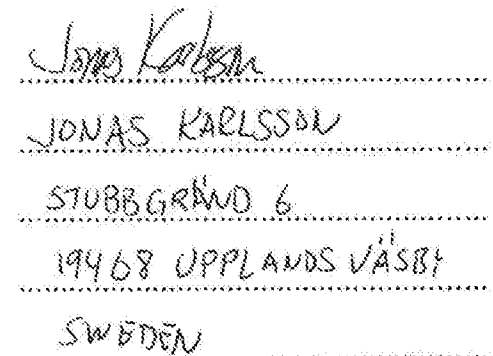 Jonas Karlsson
JONAS KARLSSON
STUBBGRÄND 6
19468 UPPLANDS VÄSBY
SWEDEN